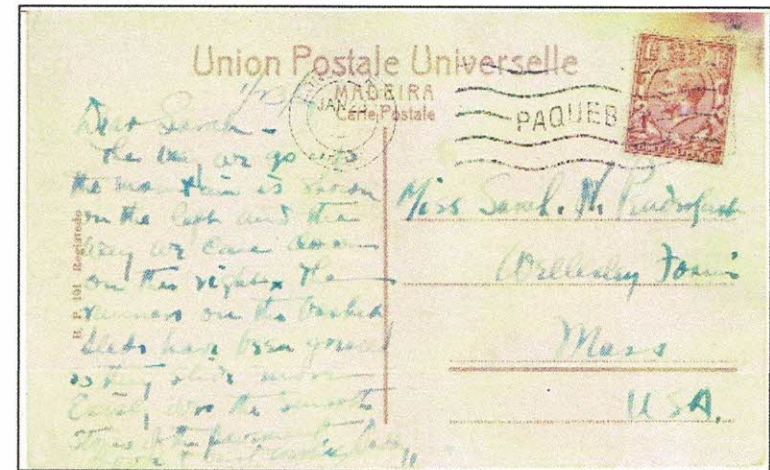 Union Postale Universelle
MADEIRA
Carte Postale
JAN
PAQUEB
Dear Sarah -
The way we go up to
the mountain is shown
on the left and the
way we came down
on the right. The
runners on the basket
sleds have been greased
so they slide more
Easily over the smooth
stones of the pavement
B. P. 191 Registado
Miss Sarah. N.
Wellesley Farms
Mass
U S A.